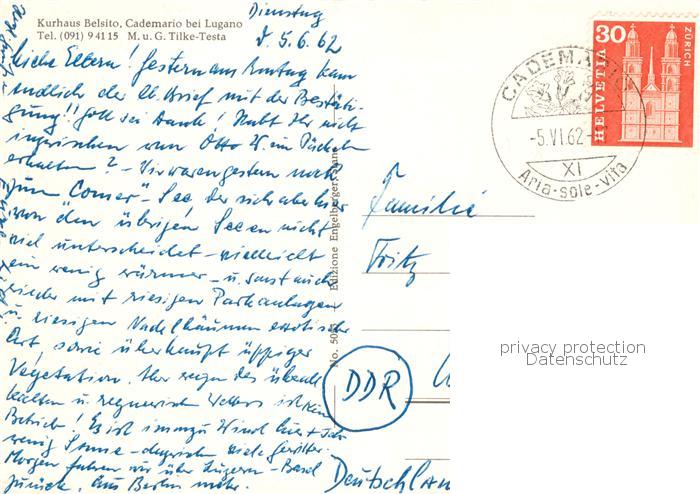 Kurhaus Belsito, Cademario bei Lugano
Tel. (091) 9 41 15 M. u. G. Tilke-Testa
Dienstag
d. 5.6.62
Liebe Eltern! Gestern am Montag kam
endlich der Brief mit der Bestäti-
gung!! Gott sei Dank! Habt Ihr nicht
inzwischen von Otto W. ein Päckchen
erhalten? - Wir waren gestern noch
zum Comer-See der sich aber hier
von den übrigen Seen nicht
viel unterscheidet - vielleicht
ein wenig wärmer - u. sonst auch
wieder mit riesigen Parkanlagen
u. riesigen Nadelbäumen exotischer
Art sowie überhaupt üppiger
Vegetation. Aber wegen des überall
kalten u. regnerischen Wetters ist kein
Betrieb! Es ist immer Wind hier +
wenig Sonne - dazwischen viele Gewitter.
Morgen fahren wir über Luzern - Basel
zurück. Aus Berlin mehr.
No. 5053 Edizione Engelberger, Stans
CADEMARIO
-5.VI.62
XI
Aria-sole-vita
30
HELVETIA
ZÜRICH
Familie
Fritz
DDR
Deutschlan
privacy protection
Datenschutz